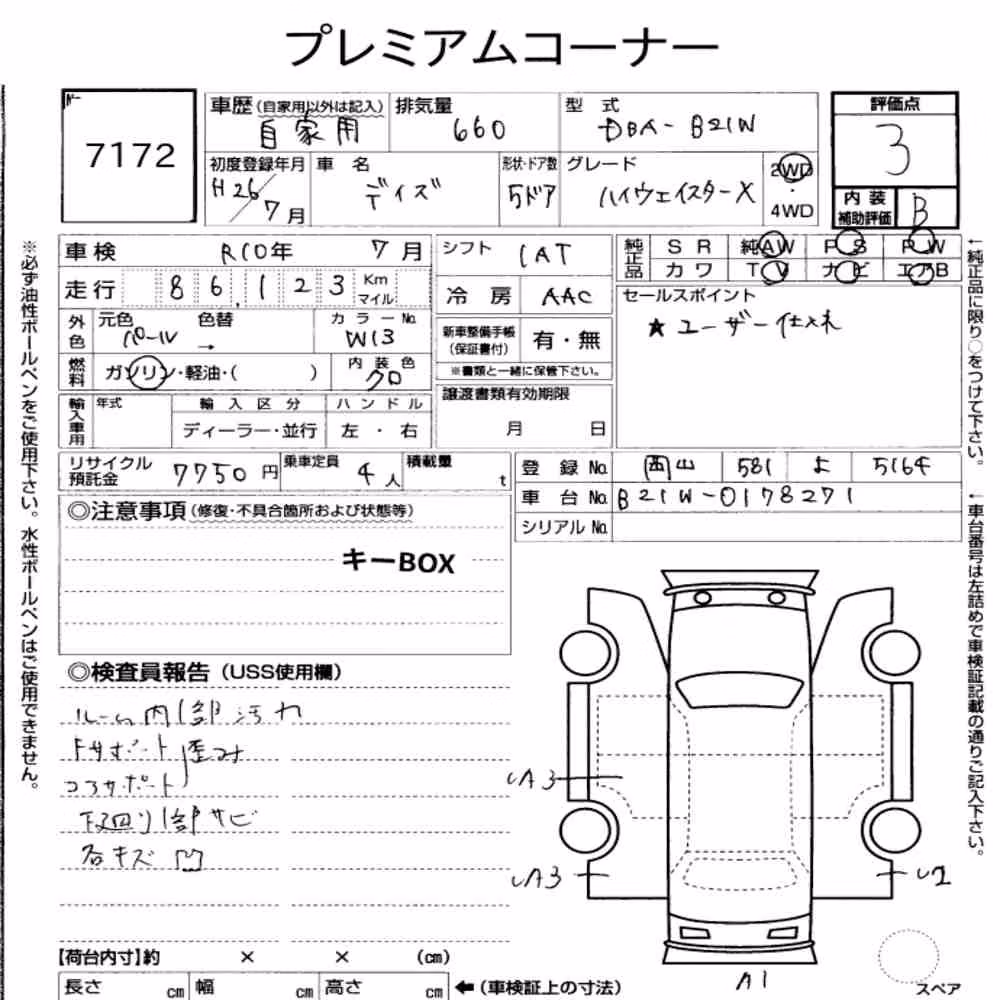 プレミアムコーナー
7172
車歴 (自家用以外は記入) 自家用
排気量 660
型式 DBA-B21W
評価点 3
初度登録年月 H26/7月
車名 デイズ
形状・ドア数 5ドア
グレード ハイウェイスターX
2WD・4WD
内装補助評価 B
車検 R10年 7月
シフト IAT
純正品 SR 純AW PS PW
カワ TV ナビ エアB
走行 86,123 Km マイル
冷房 AAC
セールスポイント
★ユーザー仕入れ
外色 元色 パール → 色替
カラーNo. W13
新車整備手帳(保証書付) 有・無
※書類と一緒に保管下さい。
燃料 ガソリン・軽油・( )
内装色 クロ
譲渡書類有効期限
月 日
輸入車用 年式 輸入区分 ハンドル
ディーラー・並行 左・右
リサイクル預託金 7750円
乗車定員 4人
積載量 t
登録No. 岡山 581 よ 5164
車台No. B21W-0178271
シリアルNo.
◎注意事項(修復・不具合箇所および状態等)
キーBOX
◎検査員報告(USS使用欄)
ルーム内1部汚れ
Fサポート歪み
コアサポート
下廻り1部サビ
各キズ凹
UA3
UA3
U2
A1
スペア
【荷台内寸】約 × × (cm)
長さ cm 幅 cm 高さ cm ←(車検証上の寸法)
※必ず油性ボールペンをご使用下さい。水性ボールペンはご使用できません。
←純正品に限り○をつけて下さい。
←車台番号は左詰めで車検証記載の通りご記入下さい。